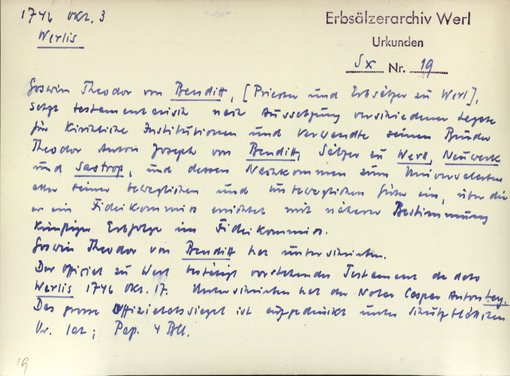 1746 Okt. 3
Werlis
Erbsälzerarchiv Werl
Urkunden
Sx Nr. 19
Goswin Theodor von Benditt, [Priester und Erbsälzer zu Werl],
setzt testamentarisch nach Aussetzung verschiedener Legate
für kirchliche Institutionen und Verwandte seinen Bruder
Theodor Anton Joseph von Benditt, Sälzer zu Werl, Neuwerk
und Sastrop, und dessen Nachkommen zum Universalerben
aller seiner beweglichen und unbeweglichen Güter ein, über die
er ein Fideikommiss errichtet mit näherer Bestimmung
künftiger Erbfolge im Fideikommiss.
Goswin Theodor von Benditt hat unterschrieben.
Der Offizial zu Werl bestätigt vorstehendes Testament de dato
Werlis 1746 Okt. 17. Unterschrieben hat der Notar Caspar Anton
Das grosse Offizialatssiegel ist aufgedrückt unter Schutzblättchen
Ur. lat; Pap. 4 Bll.
19